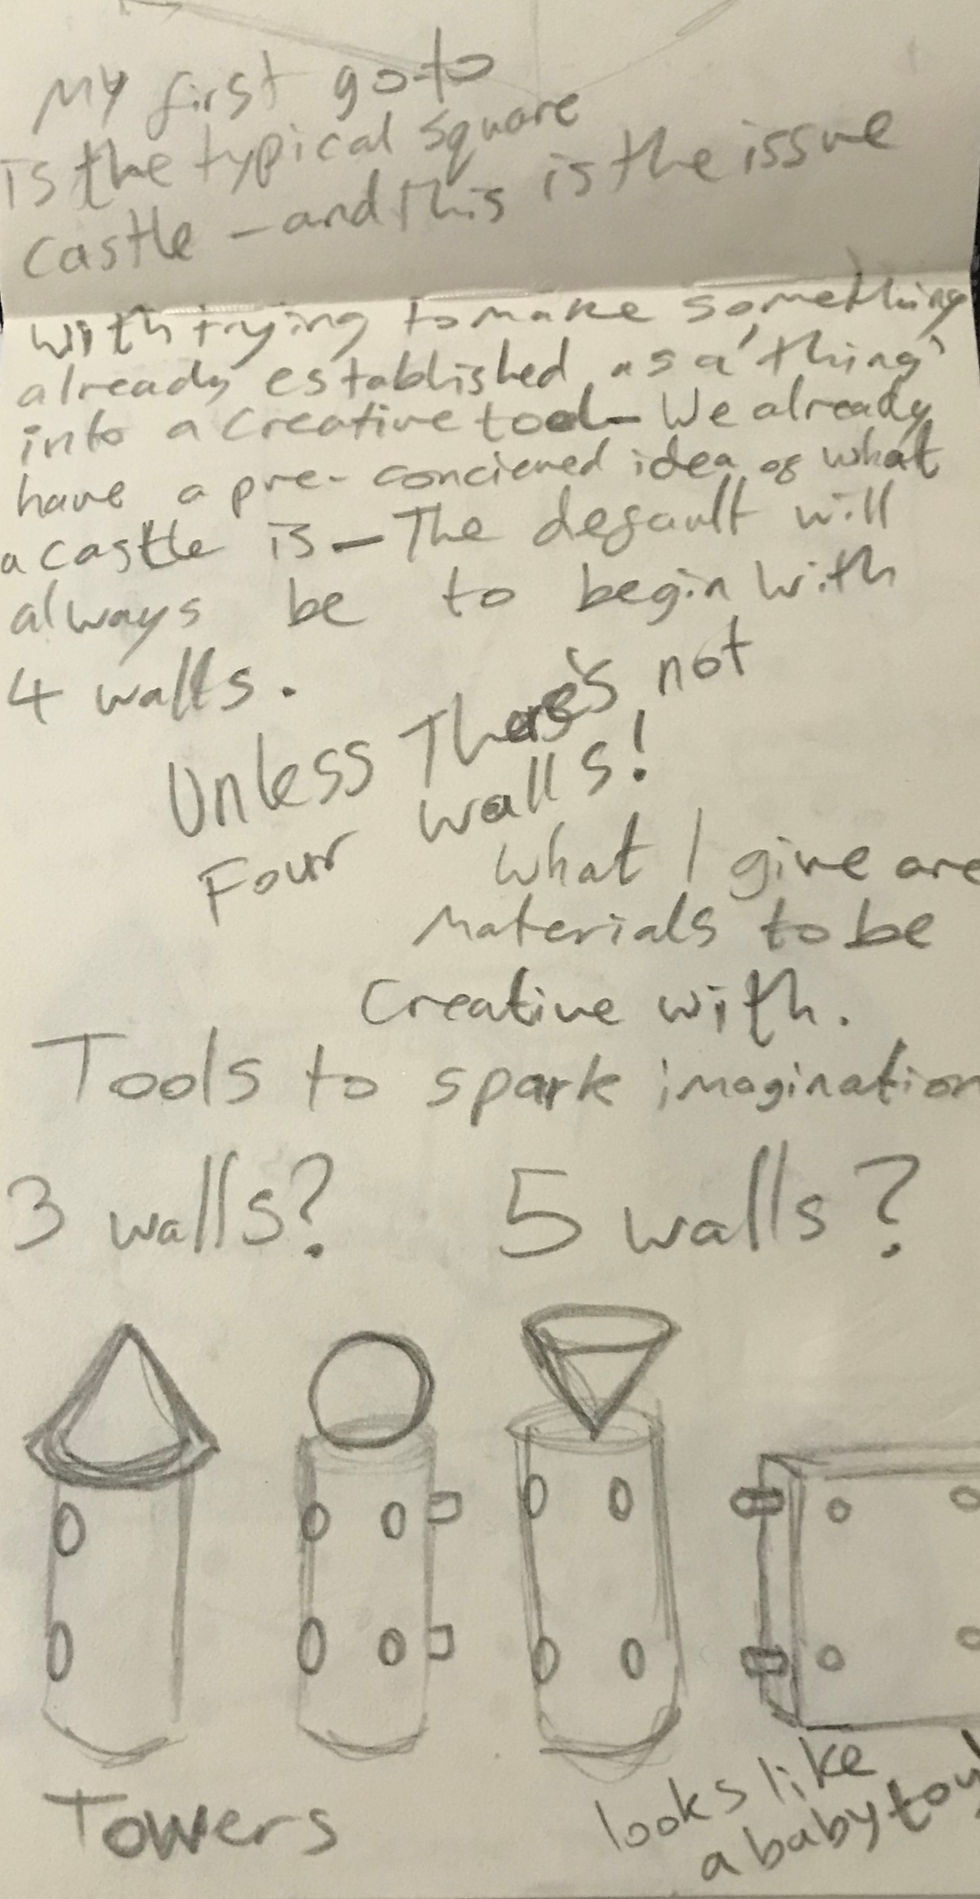 My first go to
is the typical square
castle – and this is the issue
with trying to make something
already established as a 'thing'
into a creative tool – We already
have a pre-concieved idea of what
a castle is – The default will
always be to begin with
4 walls.
Unless There's not
Four walls!
What I give are
Materials to be
Creative with.
Tools to spark imagination
3 walls? 5 walls?
Towers
looks like
a baby toy